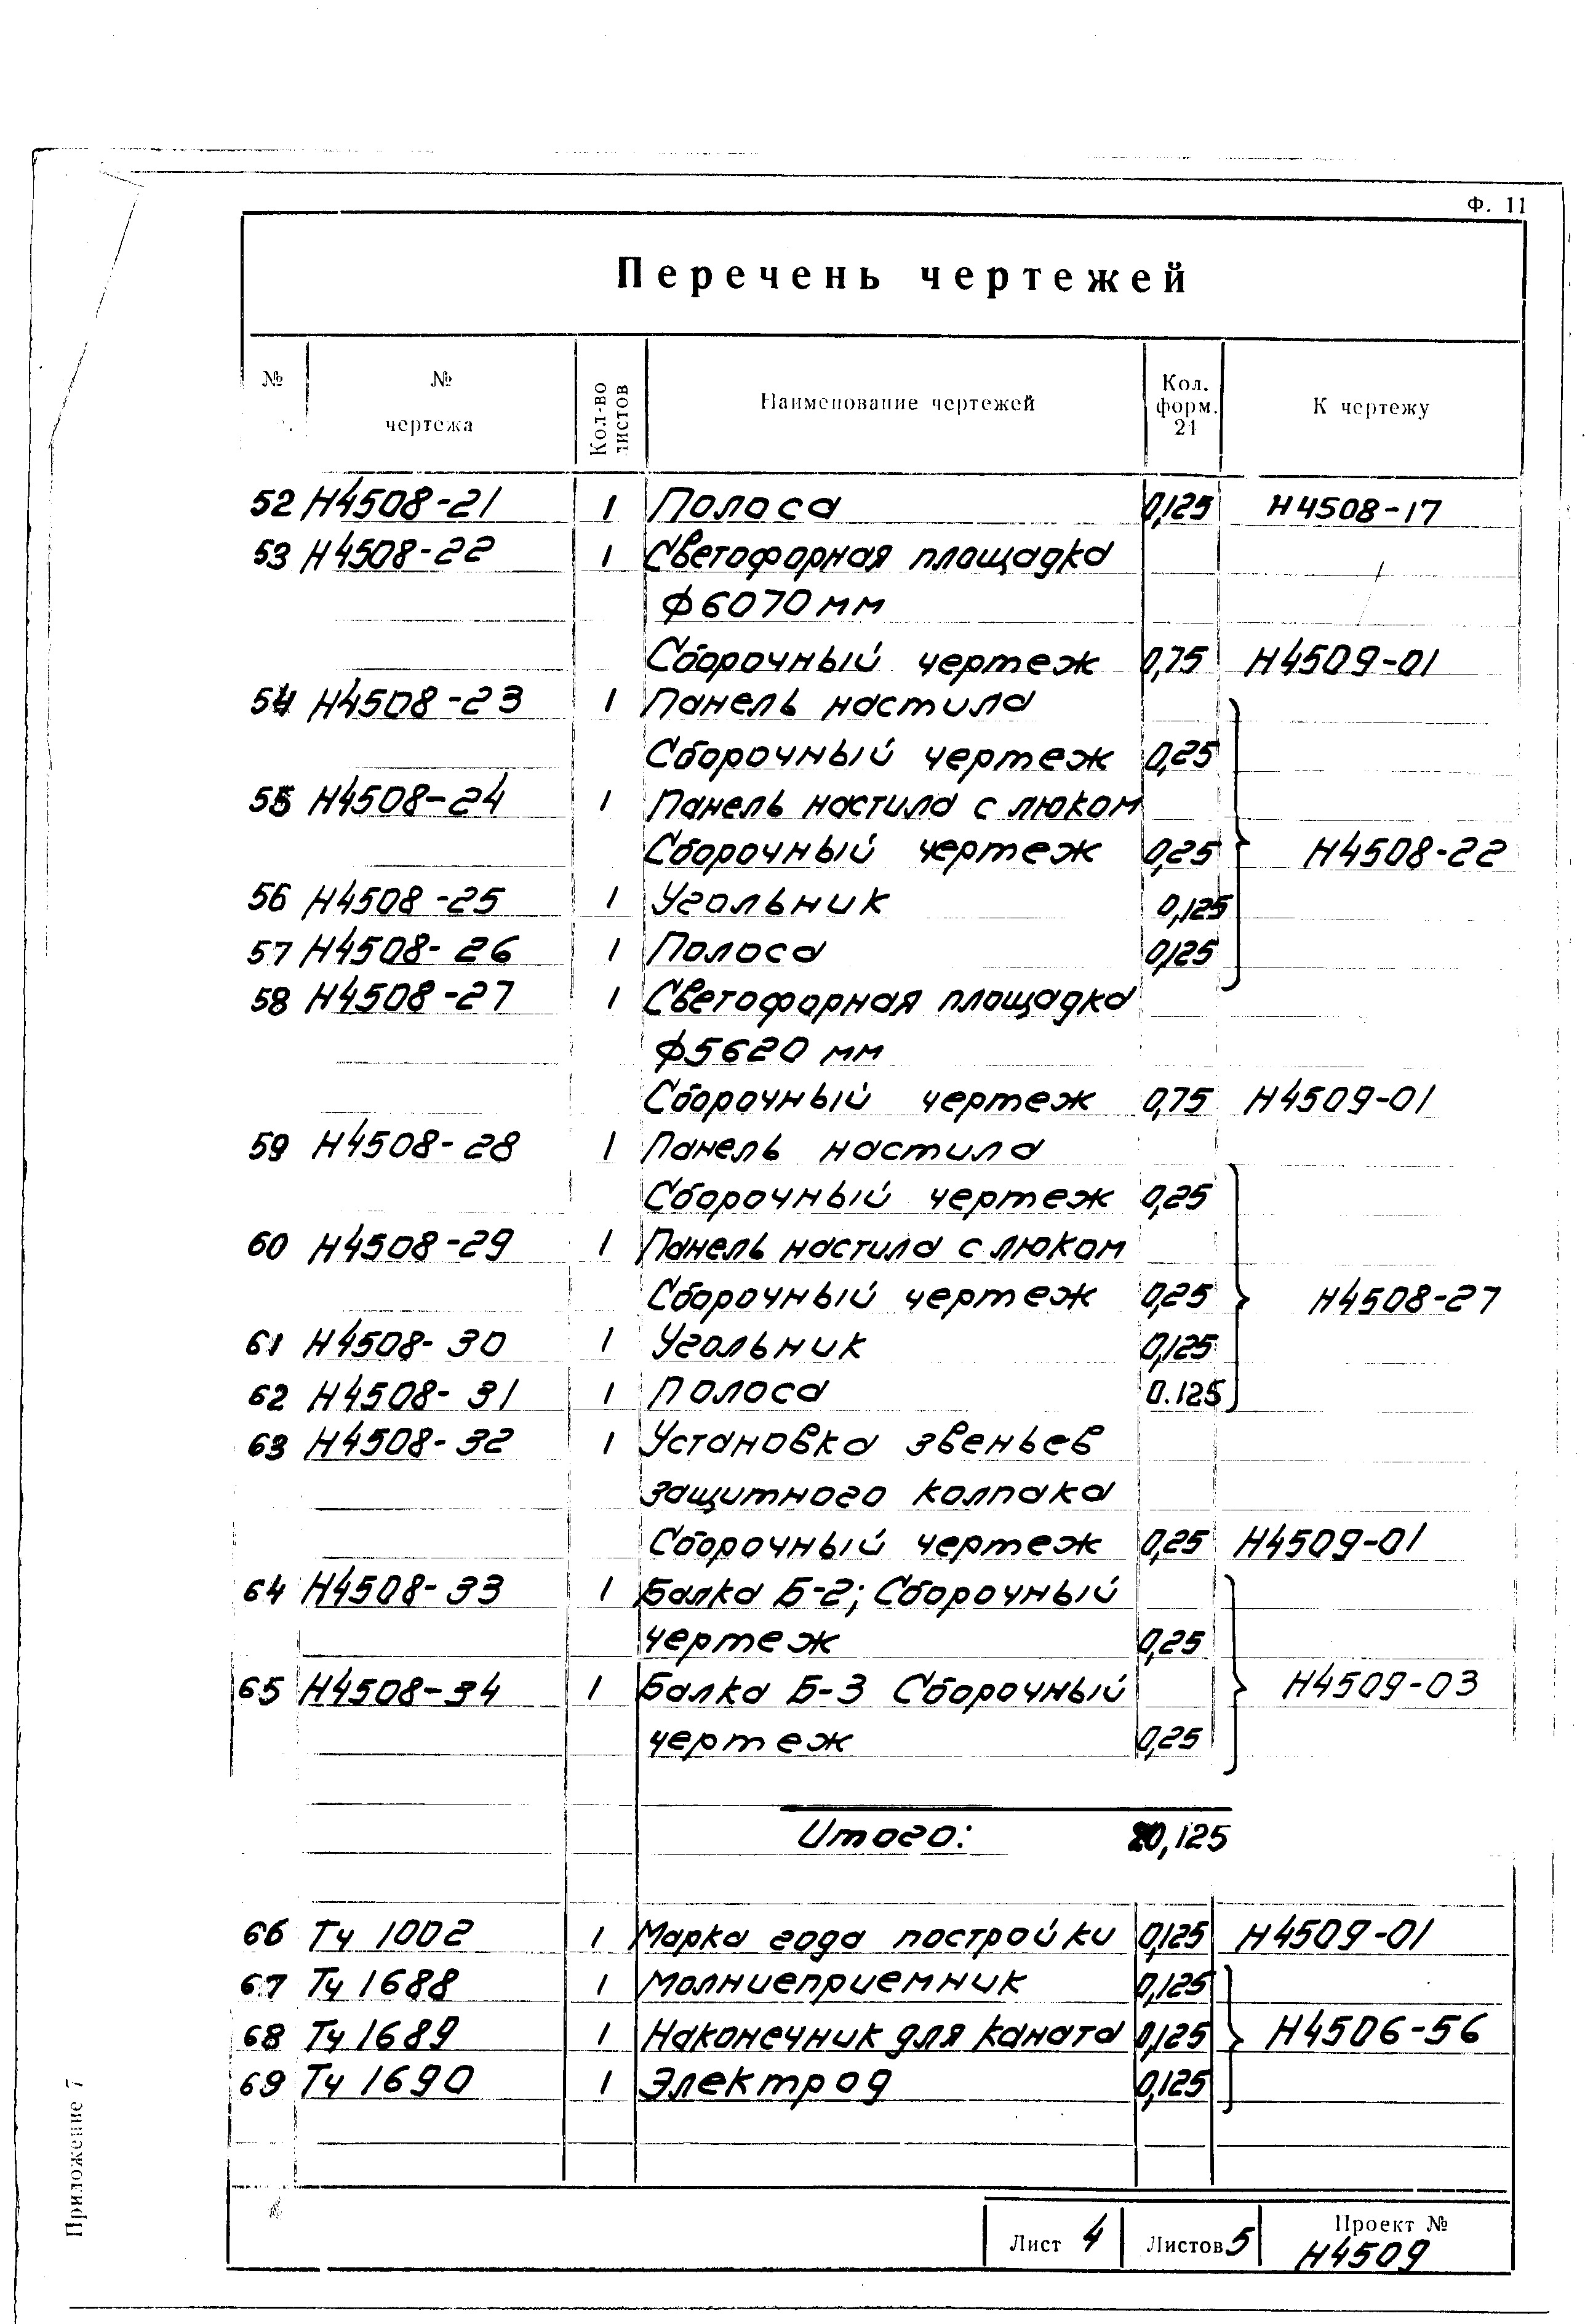 Ф. 11
Перечень чертежей
№ № чертежа Кол-во листов Наименование чертежей Кол. форм. 24 К чертежу
52 Н4508-21 1 Полоса 0,125 Н4508-17
53 Н4508-22 1 Светофорная площадка
ф6070 мм
Сборочный чертеж 0,75 Н4509-01
54 Н4508-23 1 Панель настила
Сборочный чертеж 0,25
55 Н4508-24 1 Панель настила с люком
Сборочный чертеж 0,25 Н4508-22
56 Н4508-25 1 Угольник 0,125
57 Н4508-26 1 Полоса 0,125
58 Н4508-27 1 Светофорная площадка
ф5620 мм
Сборочный чертеж 0,75 Н4509-01
59 Н4508-28 1 Панель настила
Сборочный чертеж 0,25
60 Н4508-29 1 Панель настила с люком
Сборочный чертеж 0,25 Н4508-27
61 Н4508-30 1 Угольник 0,125
62 Н4508-31 1 Полоса 0.125
63 Н4508-32 1 Установка звеньев
защитного колпака
Сборочный чертеж 0,25 Н4509-01
64 Н4508-33 1 Балка Б-2; Сборочный
чертеж 0,25
65 Н4508-34 1 Балка Б-3 Сборочный Н4509-03
чертеж 0,25
Итого: 20,125
66 Тч 1002 1 Марка года постройки 0,125 Н4509-01
67 Тч 1688 1 Молниеприемник 0,125
68 Тч 1689 1 Наконечник для каната 0,125 Н4506-56
69 Тч 1690 1 Электрод 0,125
Приложение 7
Лист 4 Листов 5 Проект №
Н4509